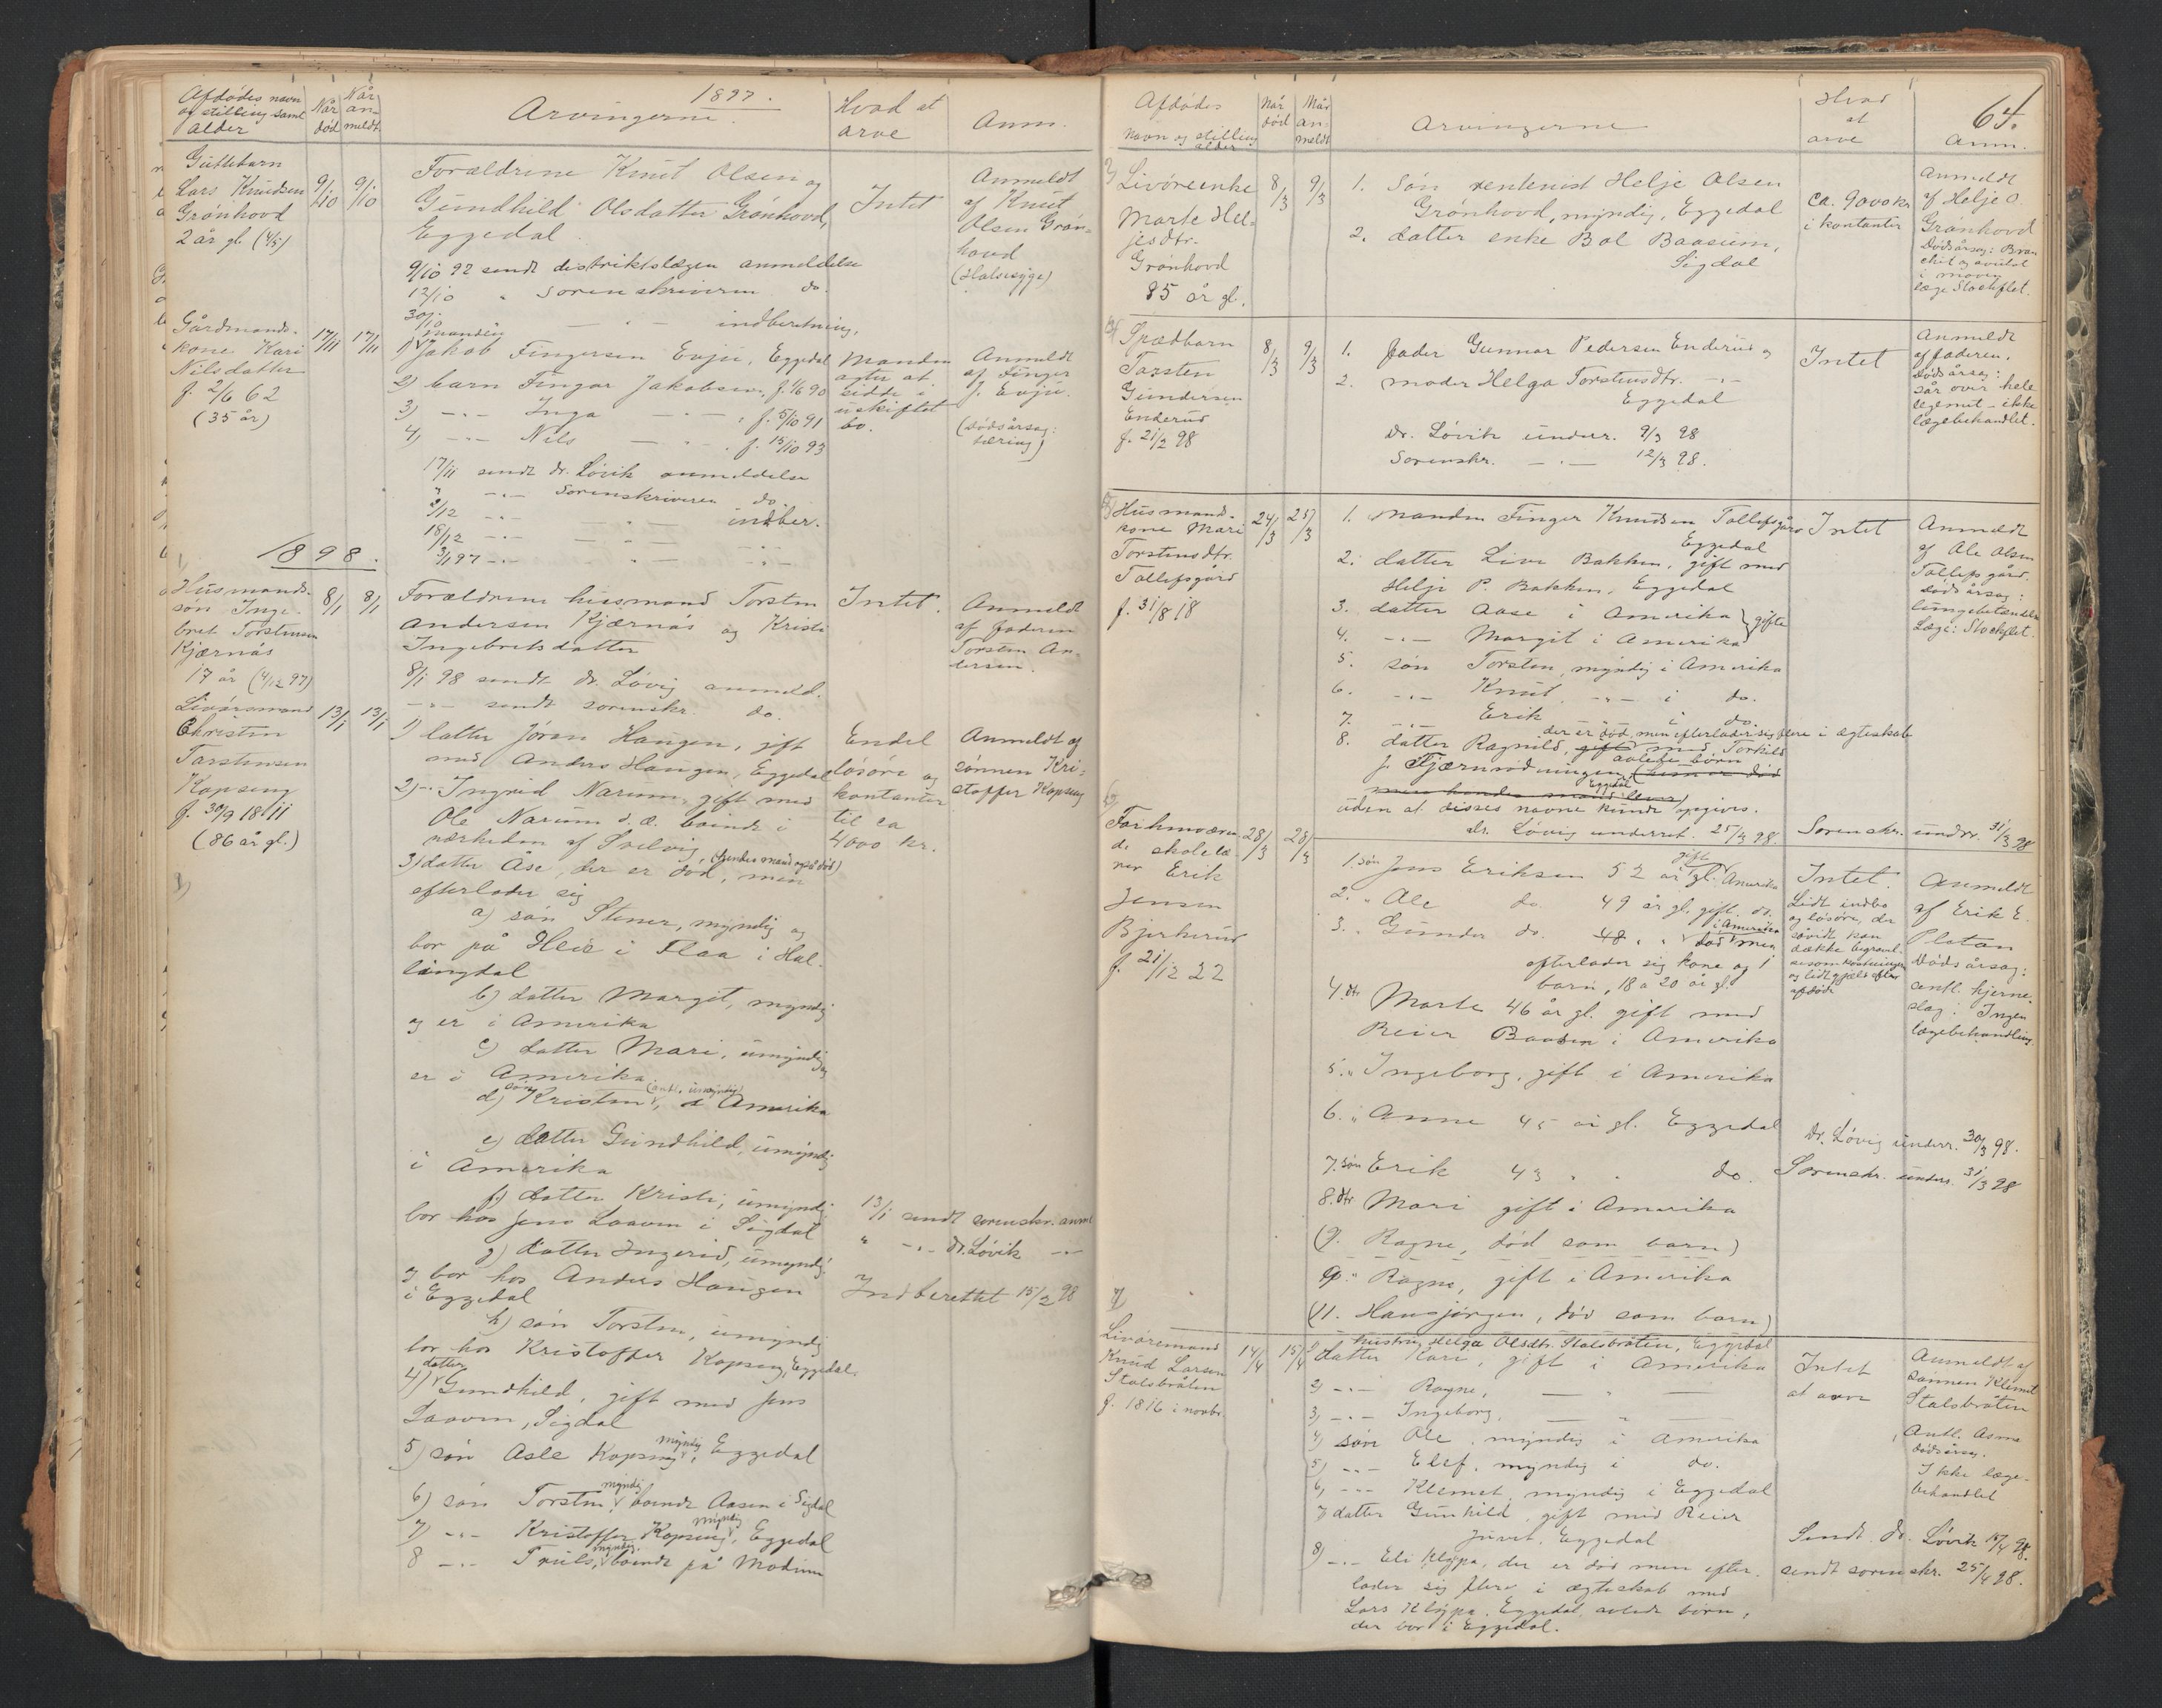 1897.
Afdødes navn og stilling samt alder
Når død
Når anmeldt
Arvingerne.
Hvad at arve
Anm.
Guttebarn
Lars Knudsen
Grønhovd
2 år gl. (4/5)
9/10
9/10
Forældrene Knut Olsen og
Gundhild Olsdatter Grønhovd,
Eggedal.
9/10 97 sendt distriktslægen anmeldelse
12/10 " sorenskriveren do.
30/10 — " — indberetning.
Intet
Anmeldt
af Knut
Olsen Grøn-
hovd
(Halsesyge)
Gårdmands-
kone Kari
Nilsdatter
f. 2/6 62
(35 år)
17/11
17/11
1) manden Jakob Fingersen Evju, Eggedal
2) barn Fingar Jakobsen, f. 1/6 90
3) -"- Inga -"- , f. 5/10 91
4) -"- Nils -"- , f. 15/10 93
17/11 sendt dr. Løvik anmeldelse
" -"- Sorenskriveren do.
2/12 -"- -"- indber.
18/12 -"- -"- -"-
3/1 97 -"- -"- -"-
Manden
agter at
sidde i
uskiftet
bo.
Anmeldt
af Finger
J. Evju.
(dødsårsag:
tæring)
1898.
1)
Husmands-
søn Inge-
bret Torstensen
Kjærnås
17 år (4/12 97)
8/1
8/1
Forældrene husmand Torsten
Andersen Kjærnås og Kristi
Ingebretsdatter
8/1 98 sendt dr. Løvig anmeld.
-"- sendt sorenskr. do.
Intet.
Anmeldt
af faderen
Torsten An-
dersen.
Livøresmand
Christen
Torstensen
Kopseng
f. 30/9 1811
(86 år gl.)
2)
13/1
13/1
1) datter Jøran Haugen, gift
med Anders Haugen, Eggedal
2) -"- Ingrid Narum, gift med
Ole Narum s. æ. boende i
nærheden af Svelvig
3) datter Åse, der er død, (hendes mand også død) men
efterlader sig
a) søn Stener, myndig og
bor på Heie i Flaa i Hal-
lingdal
b) datter Margit, myndig
og er i Amerika
c) datter Mari, umyndig og
er i Amerika
d) søn Kristen (antl. umyndig), i Amerika
e) datter Gundhild, umyndig
i Amerika
f) datter Kristi, umyndig
bor hos Jens Laaven i Sigdal
g) datter Ingerid, umyndig
og bor hos Anders Haugen
i Eggedal
h) søn Torsten, umyndig
bor hos Kristoffer Kopseng, Eggedal.
4) datter Gundhild, gift med Jens
Laaven, Sigdal
5) søn Asle Kopseng, myndig, Eggedal
6) søn Torsten, myndig, boende Aasen i Sigdal
7) -"- Kristoffer Kopseng, myndig, Eggedal
8 -"- Truls, myndig, boende på Modum
Endel
løsøre og
kontanter
til ca
4000 kr.
Anmeldt af
sønnen Kri-
stoffer Kopseng
13/1 sendt sorenskr. anm.
" -"- dr. Løvik -"-
Indberettet 15/2 98
64.
Afdødes
navn og stilling
alder
Når død
Når anmeldt
Arvingerne
Hvad
at
arve
Anm.
3)
Livøreenke
Marte Hel-
jesdtr.
Grønhovd
85 år gl.
8/3
9/3
1. Søn rentenist Helje Olsen
Grønhovd, myndig, Eggedal
2. datter enke Bol Baasum,
Sigdal
Ca. 9000 kr
i kontanter
Anmeldt
af Helje O.
Grønhovd
Dødsårsag: Bron
chit og svulst
i maven
læge Stockflet.
4)
Spædbarn
Torsten
Gundersen
Enderud
f. 21/2 98
8/3
9/3
1. fader Gunnar Pedersen Enderud og
2. moder Helga Torstensdtr. -"-
Eggedal
Dr. Løvik underr. 9/3 98
Sorenskr. -"- 12/3 98.
Intet
Anmeldt
af faderen.
Dødsårsag:
sår over hele
legemet - ikke
lægebehandlet.
5)
Husmands-
kone Mari
Torstensdtr.
Tollefsgård
f. 31/8 18
24/3
25/3
1. manden Finger Knudsen Tollefsgård
Eggedal
2. datter Live Bakken, gift med
Helje P. Bakken, Eggedal
3. datter Aase i Amerika } gifte
4. -"- Margit i Amerika
5. søn Torsten, myndig i Amerika
6. -"- Knut -"- i do.
7. -"- Erik i do.
8. datter Ragnild, der er død, men efterlader sig flere i ægteskab
gift med Torkild
f. Fjærnrødningen, Eggedal avlede børn
uden at disses navne kunde opgives.
dr. Løvig underret. 25/3 98. Sorenskr. underr. 31/3 98
Intet
Anmeldt
af Ole Olsen
Tollefsgård.
dødsårsag:
lungebetændelse
Læge: Stockflet.
6)
Forhenværen-
de skolelæ-
rer Erik
Jensen
Bjerkerud
f. 21/12 22
28/3
28/3
1. søn Jens Eriksen 52 år gl. gift Amerika
2. " Ole do. 49 år gl. gift do.
3. " Gunder do. 48 " " død i Amerika men
efterlader sig kone og 1
barn, 18 a 20 år gl.
4. dtr Marte 46 år gl. gift med
Reier Baasen i Amerika
5. " Ingeborg, gift i Amerika
6. " Anne 45 år gl. Eggedal
7. søn Erik 43 " " do.
8. dtr Mari gift i Amerika
(9. Ragne, død som barn)
9. " Ragne, gift i Amerika
(11. Hansjørgen, død som barn)
Intet.
Lidt indbo
og løsøre, der
såvidt kan
dække begravel-
sesomkostninger
og lidt gjæld efter
afdøde
Dr. Løvig underr. 30/3 98.
Sorenskr. underr. 31/3 98
Anmeldt
af Erik E.
Platan
Dødsårsag:
antl. hjerne-
slag. Ingen
lægebehandling.
7)
Livøremand
Knud Larsen
Stalsbråten
f. 1816 i novbr.
14/4
15/4
hustru Helga Olsdtr. Stalsbråten, Eggedal
1) datter Kari, gift i Amerika
2) -"- Ragne, — " —
3) -"- Ingeborg, — " —
4) søn Ole, myndig i Amerika
5) -"- Elef, myndig i do.
6) -"- Klemet, myndig i Eggedal
7) datter Gunhild, gift med Reier
Juvet, Eggedal
8) -"- Eli Kløpa, der er død men efter-
lader sig flere i ægteskab med
Lars Kløpa, Eggedal, avlede børn,
der bor i Eggedal.
Intet
at arve
Anmeldt af
sønnen Klemet
Stalsbråten
Antl. Asma
dødsårsag.
Ikke læge-
behandlet
Sendt dr. Løvik 15/4 98.
sendt sorenskr. 25/4 98.